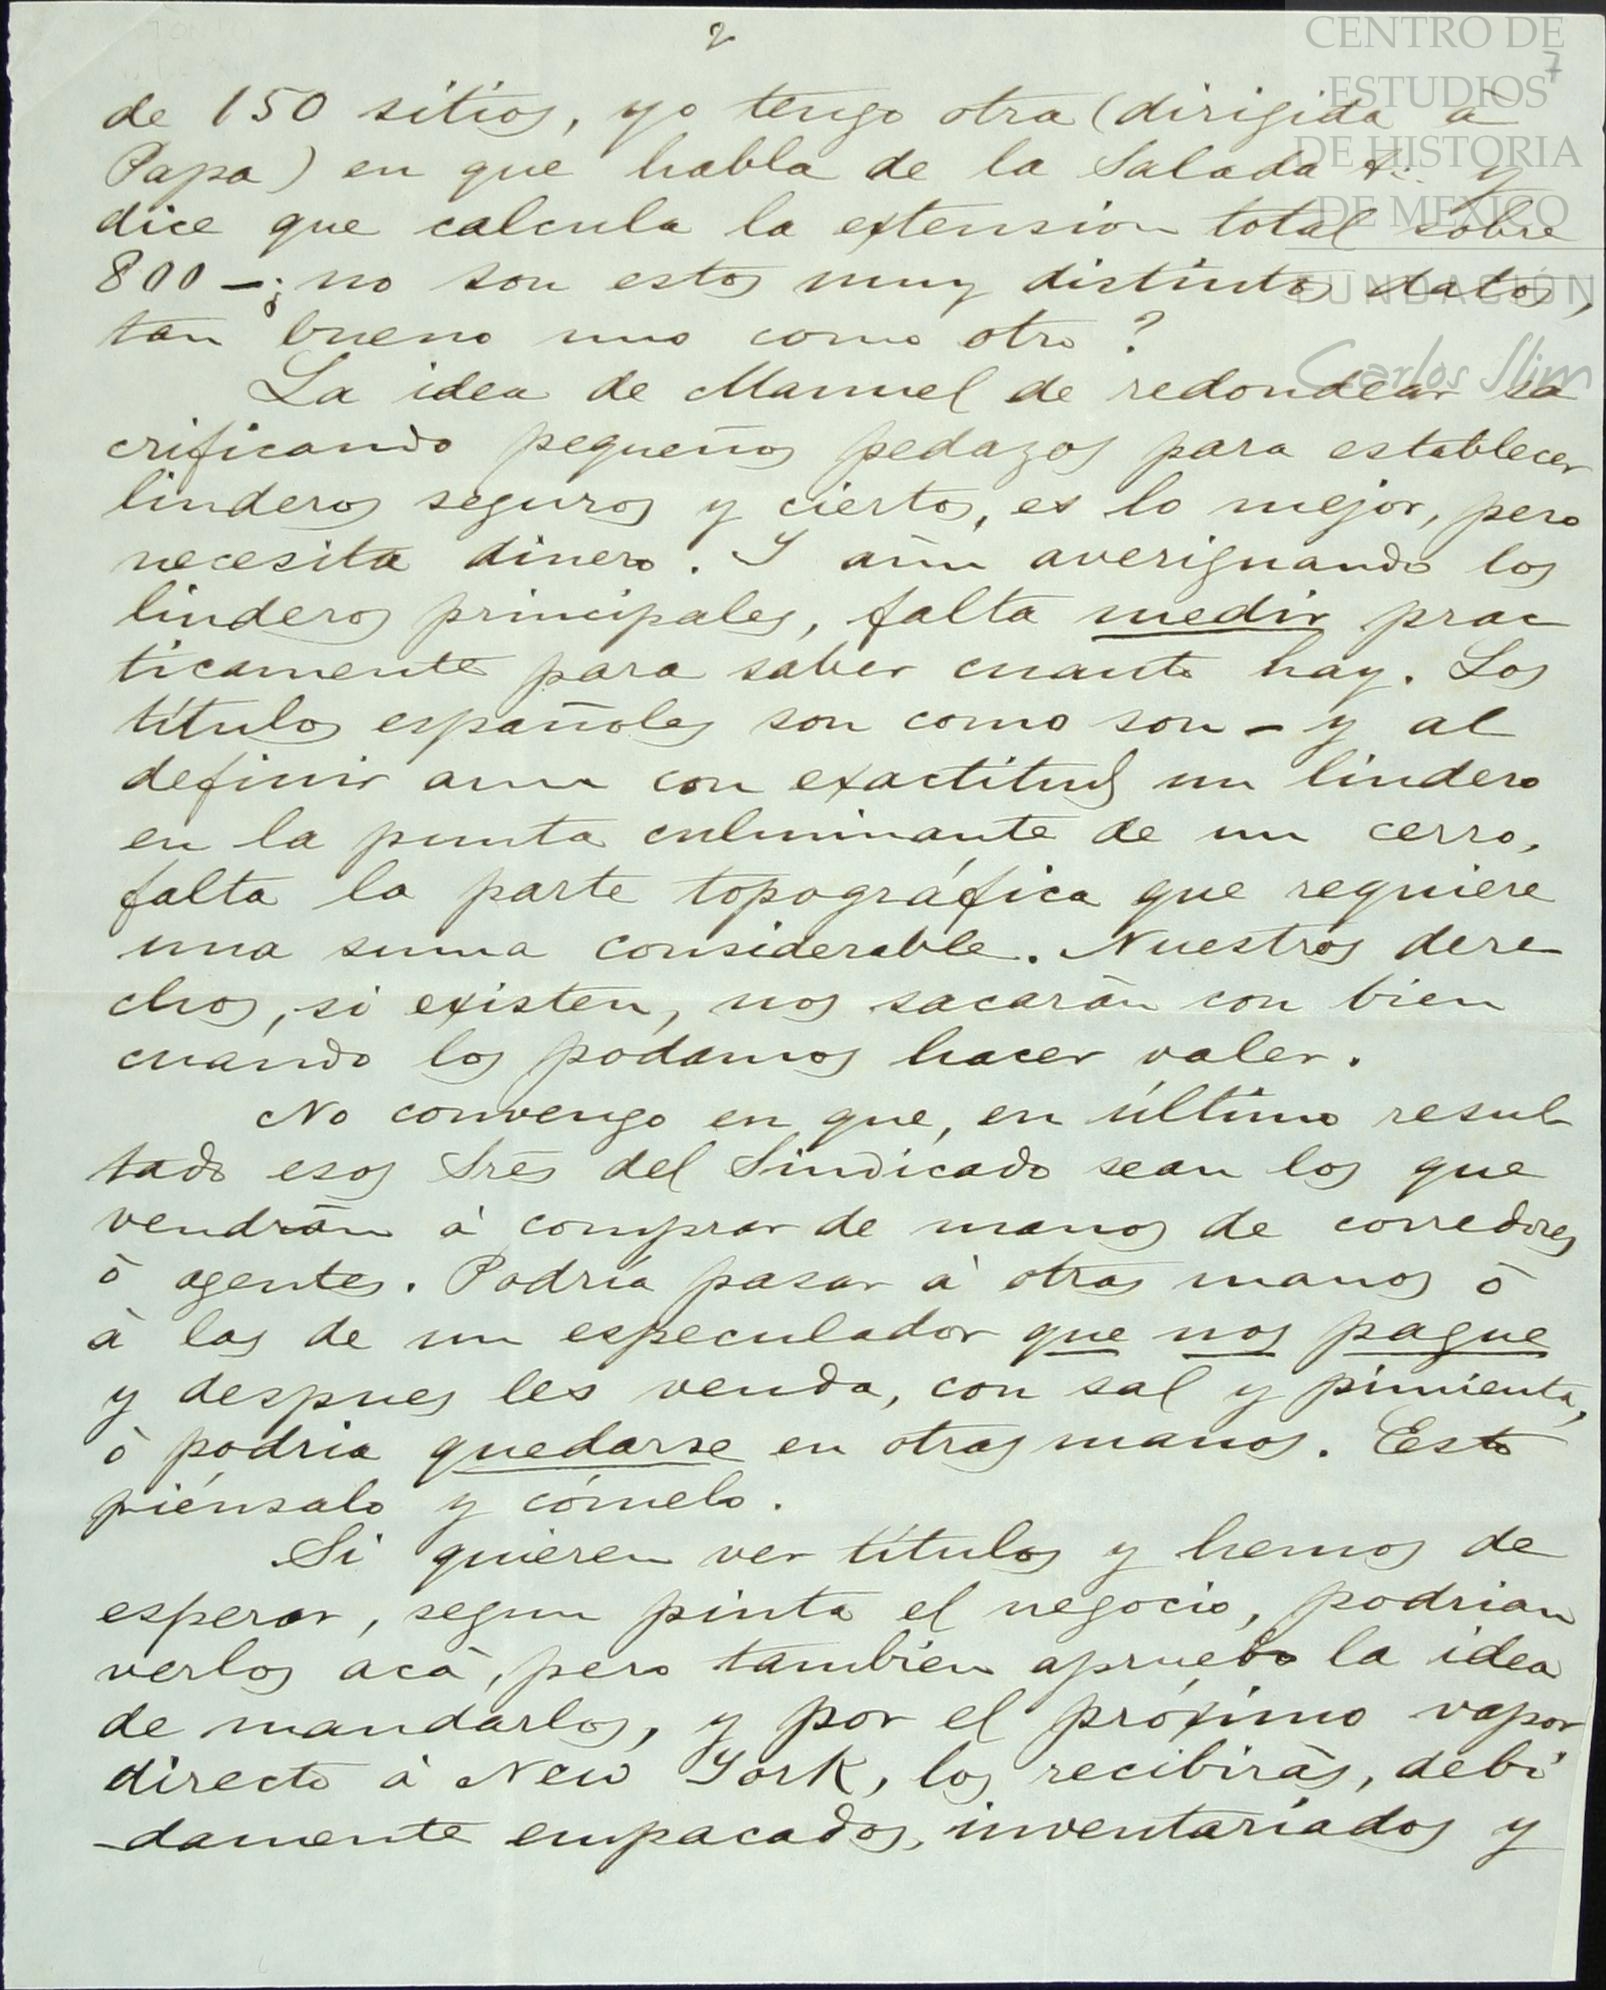 2
7
CENTRO DE
ESTUDIOS
DE HISTORIA
DE MEXICO
FUNDACIÓN
Carlos Slim
de 150 sitios, yo tengo otra (dirigida á
Papa) en que habla de la Salada y
dice que calcula la extension total sobre
800 — ¿no son estos muy distintos datos,
tan bueno uno como otro?
La idea de Manuel de redondear sa
crificando pequeños pedazos para establecer
linderos seguros y ciertos, es lo mejor, pero
necesita dinero. Y aún averiguando los
linderos principales, falta medir prac
ticamente para saber cuanto hay. Los
títulos españoles son como son — y al
definir aun con exactitud un lindero
en la punta culminante de un cerro,
falta la parte topográfica que requiere
una suma considerable. Nuestros dere
chos, si existen, nos sacarán con bien
cuando los podamos hacer valer.
No convengo en que, en último resul
tado esos Sres del Sindicado sean los que
vendrán á comprar de manos de corredores
ó agentes. Podría pasar á otras manos ó
á las de un especulador que nos pague
y despues les venda, con sal y pimienta,
ó podria quedarse en otras manos. Esto
piénsalo y cómelo.
Si quieren ver títulos y hemos de
esperar, segun pinta el negocio, podrian
verlos acá, pero tambien apruebo la idea
de mandarlos, y por el próximo vapor
directo á New York, los recibirás, debi
-damente empacados, inventariados y